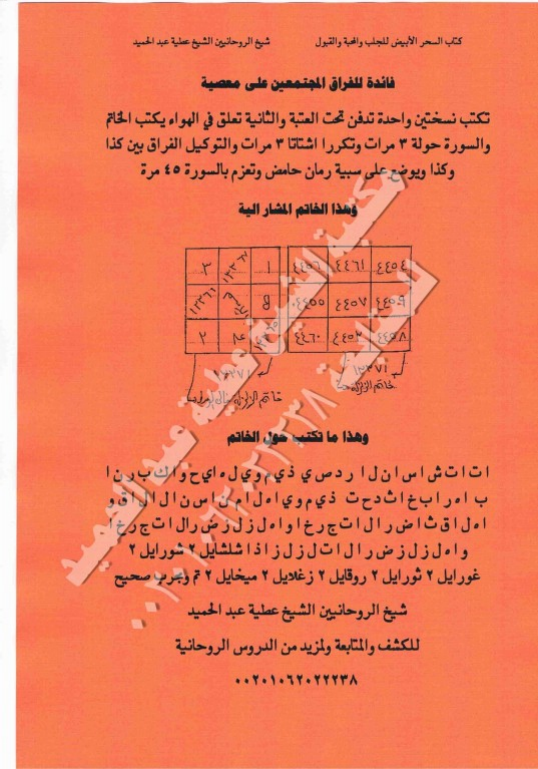 كتاب السحر الأبيض للجلب والمحبة والقبول شيخ الروحانيين الشيخ عطية عبد الحميد
فائدة للفراق المجتمعين على معصية
تكتب نسختين واحدة تدفن تحت العتبة والثانية تعلق في الهواء يكتب الخاتم
والسورة حولة ٣ مرات وتكررا اشتاتا ٣ مرات والتوكيل الفراق بين كذا
وكذا ويوضع على سبية رمان حامض وتعزم بالسورة ٤٥ مرة
وهذا الخاتم المشار الية
٣ ١ ٤٤٥٦ ٤٤٦١ ٤٤٥٤
٤٤٥٥ ٤٤٥٧ ٤٤٥٩
٢ ٤٤٦٠ ٤٤٥٣ ٤٤٥٨
١٣٣٧١
خاتم
وهذا ما تكتب حول الخاتم
ا ت ا ت ش ا س ا ن ل ا ر د ص ي ذ ي م و ي ل ه ا ي ح و ا ك ب ر ن ا
ب ا ه ر ا ب خ ا ث د ح ت ذ ي م و ي ا ه ل ا م ن ا س ن ا ل ا ل ا ق و
ا ه ل ا ق ث ا ض ر ا ل ا ت ج ر خ ا و ا ه ل ز ل ز ض ر ا ل ا ت ج ر خ ا
و ا ه ل ز ل ز ض ر ا ل ا ت ل ز ل ز ا ذ ا شلشايل ٢ شورايل ٢
غورايل ٢ ثورايل ٢ روقايل ٢ زغلايل ٢ ميخايل ٢ تم ومجرب صحيح
شيخ الروحانيين الشيخ عطية عبد الحميد
للكشف والمتابعة ولمزيد من الدروس الروحانية
٠٠٢٠١٠٦٢٠٢٢٢٣٨
مكتبة الشيخ عطية عبد الحميد
للمتابعة ٠٠٢٠١٠٦٢٠٢٢٢٣٨